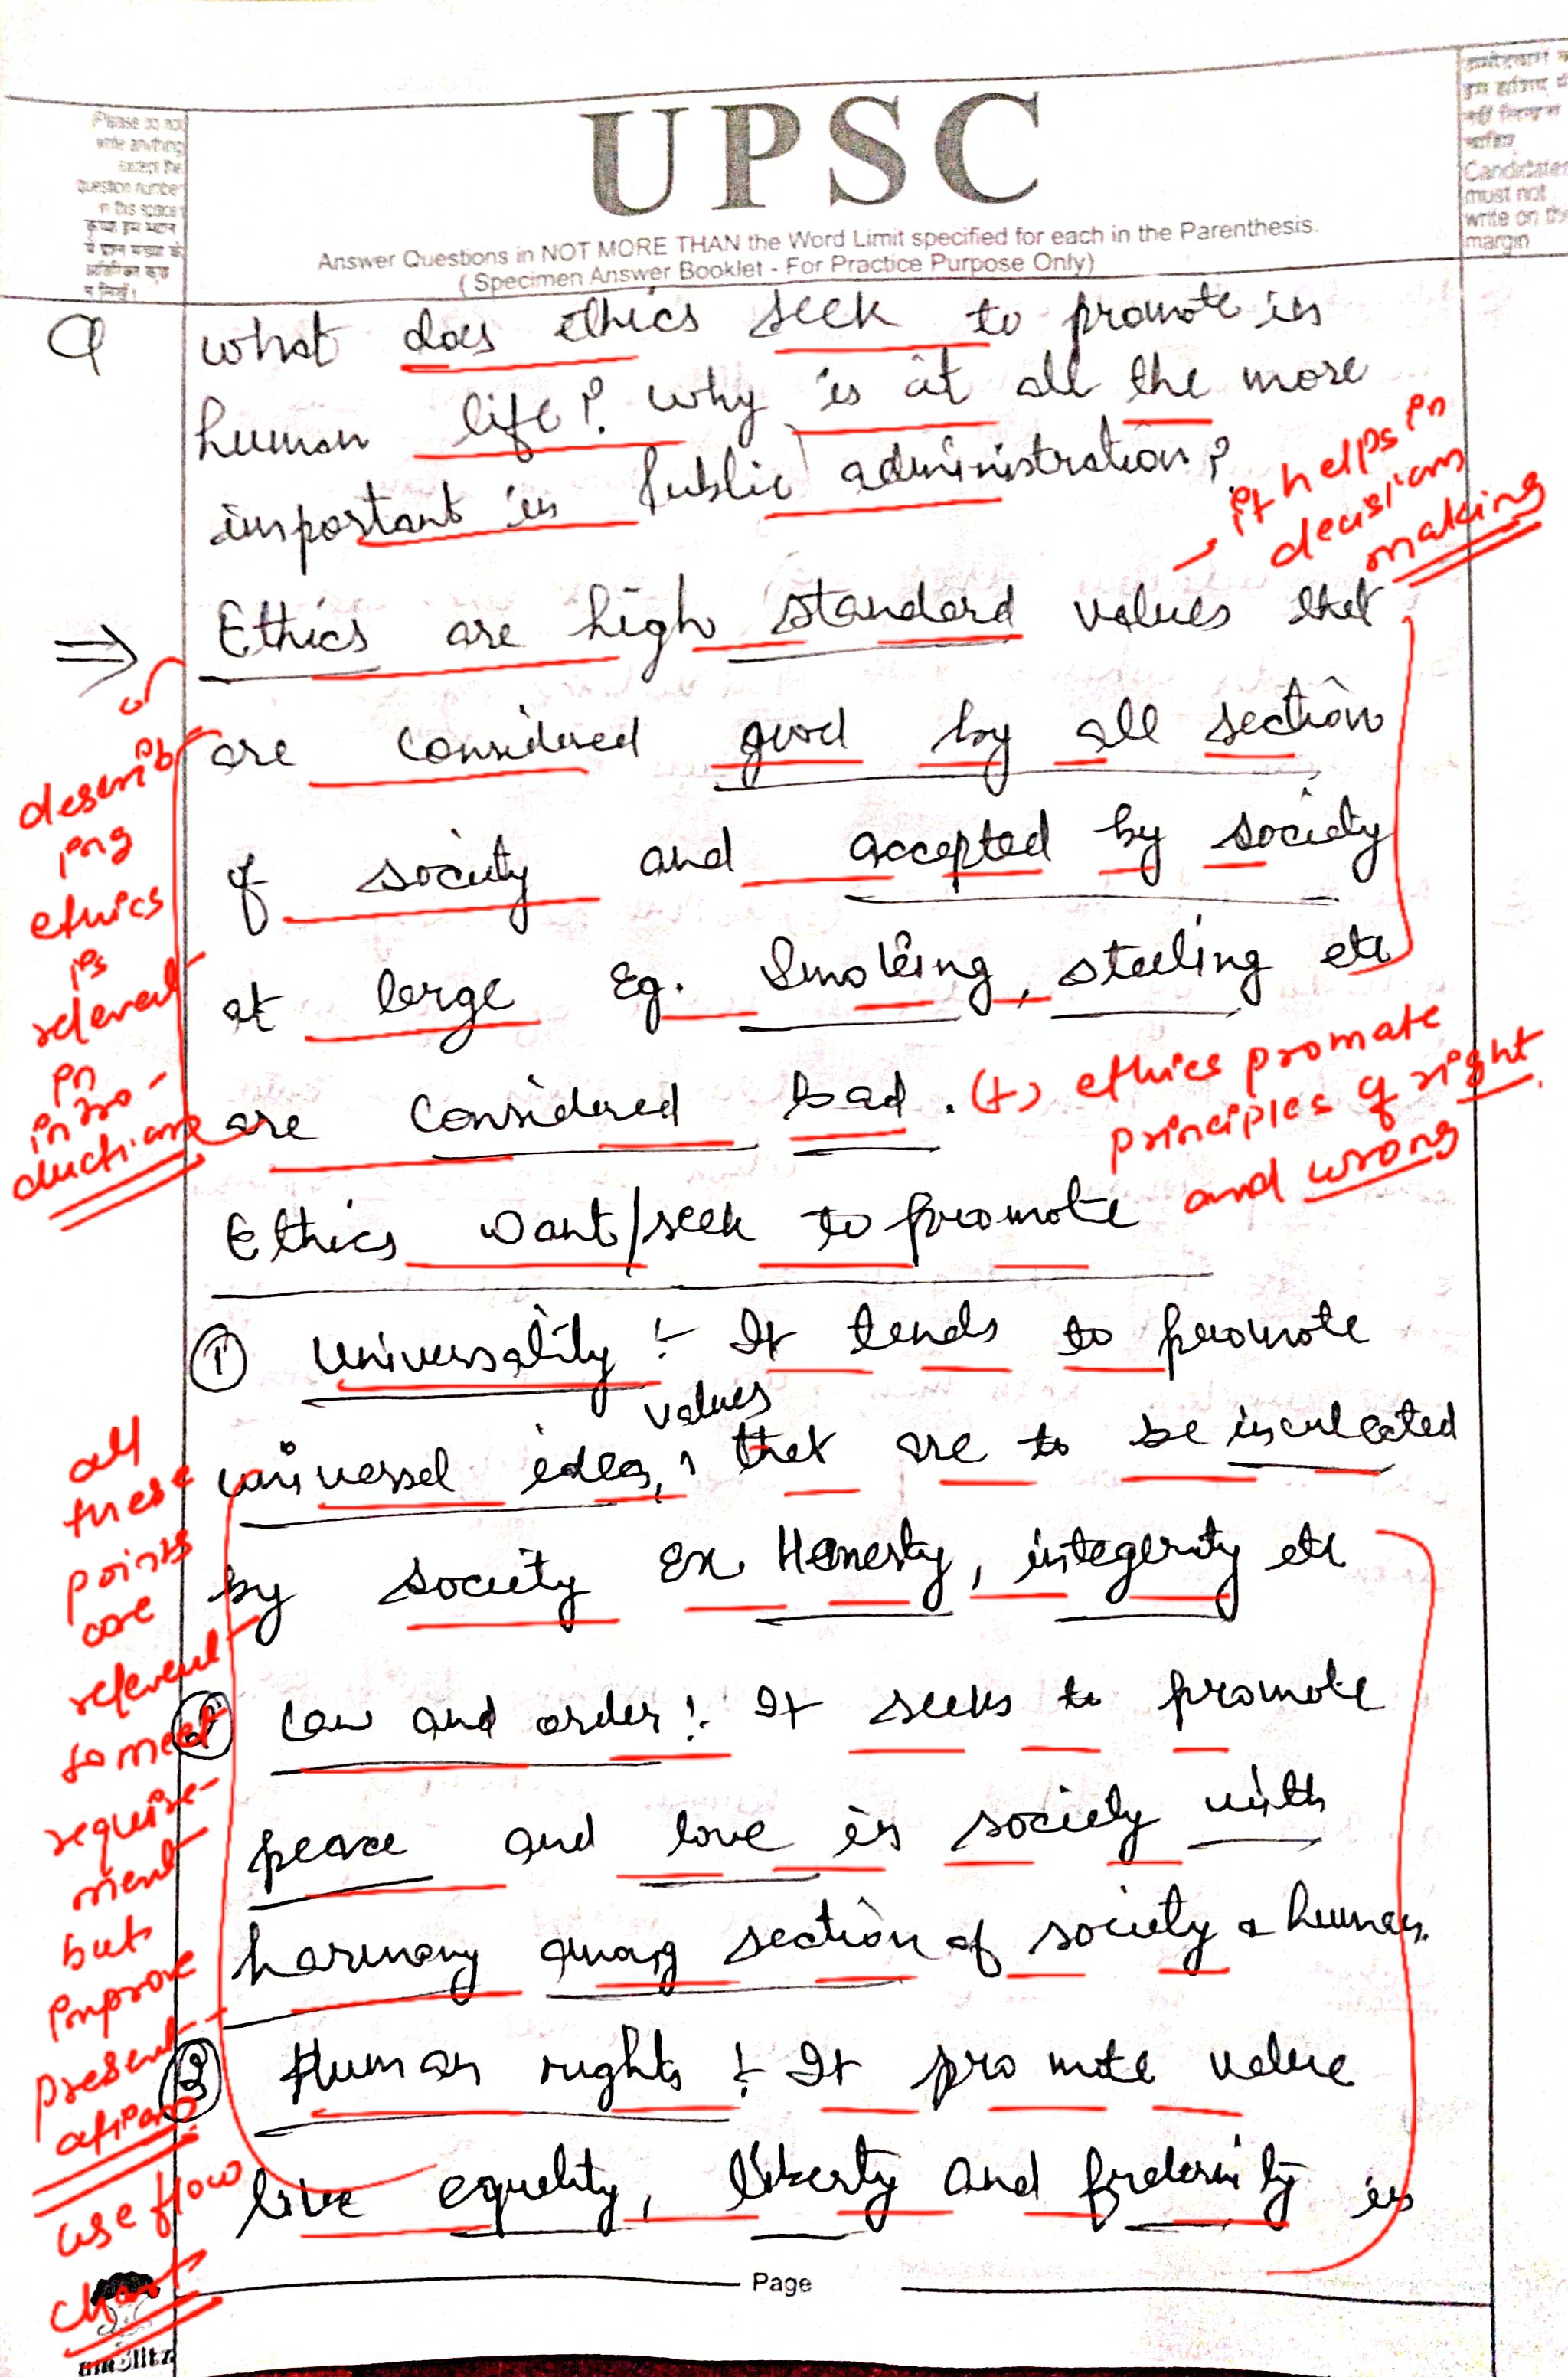 Please do not
write anything
except the
question number
in this space
UPSC
Answer Questions in NOT MORE THAN the Word Limit specified for each in the Parenthesis.
( Specimen Answer Booklet - For Practice Purpose Only)
Candidates
must not
write on the
margin
Q what does ethics seek to promote in
human life? why is it all the more
important in Public administration?
it helps in
decision
making
⇒ Ethics are high standard values that
are considered good by all section
of society and accepted by society
at large Eg. Smoking, steeling etc
are considered bad.
(+) ethics promate
principles of right
and wrong
describ
ing
ethics
is
relevent
in
intro-
duction
Ethics want/seek to promote
① Universality :- It tends to promote
universal idea, values that are to be inculcated
by society Ex Honesty, integerity etc
② Law and order :- It seeks to promote
peace and love in society with
harmony among section of society & human.
③ Human rights :- It promote value
like equality, liberty and fraternity in
all
these
points
are
relevent
to meet
require-
ment
but
improve
present-
ation
use flow
chart
Page